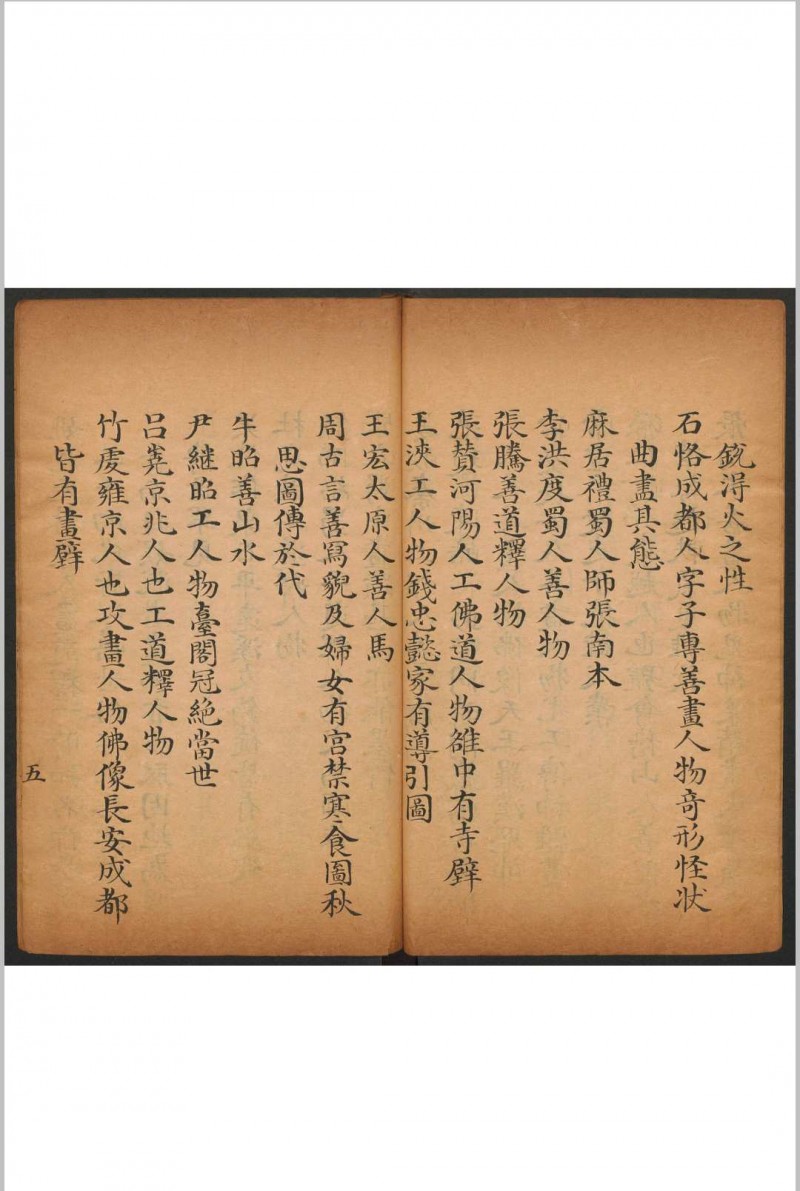 銳得火之性
石恪成都人字子專善畫人物奇形怪狀
曲盡其態
麻居禮蜀人師張南本
李洪度蜀人善人物
張騰善道釋人物
張贊河陽人工佛道人物雒中有寺壁
王浹工人物錢忠懿家有導引圖
王宏太原人善人馬
周古言善冩貌及婦女有宫禁寒食圖秋
思圖傳於代
牛昭善山水
尹継昭工人物臺閣冠絶當世
吕嶤京兆人也工道釋人物
竹虔雍京人也攻畫人物佛像長安成都
皆有畫壁
五